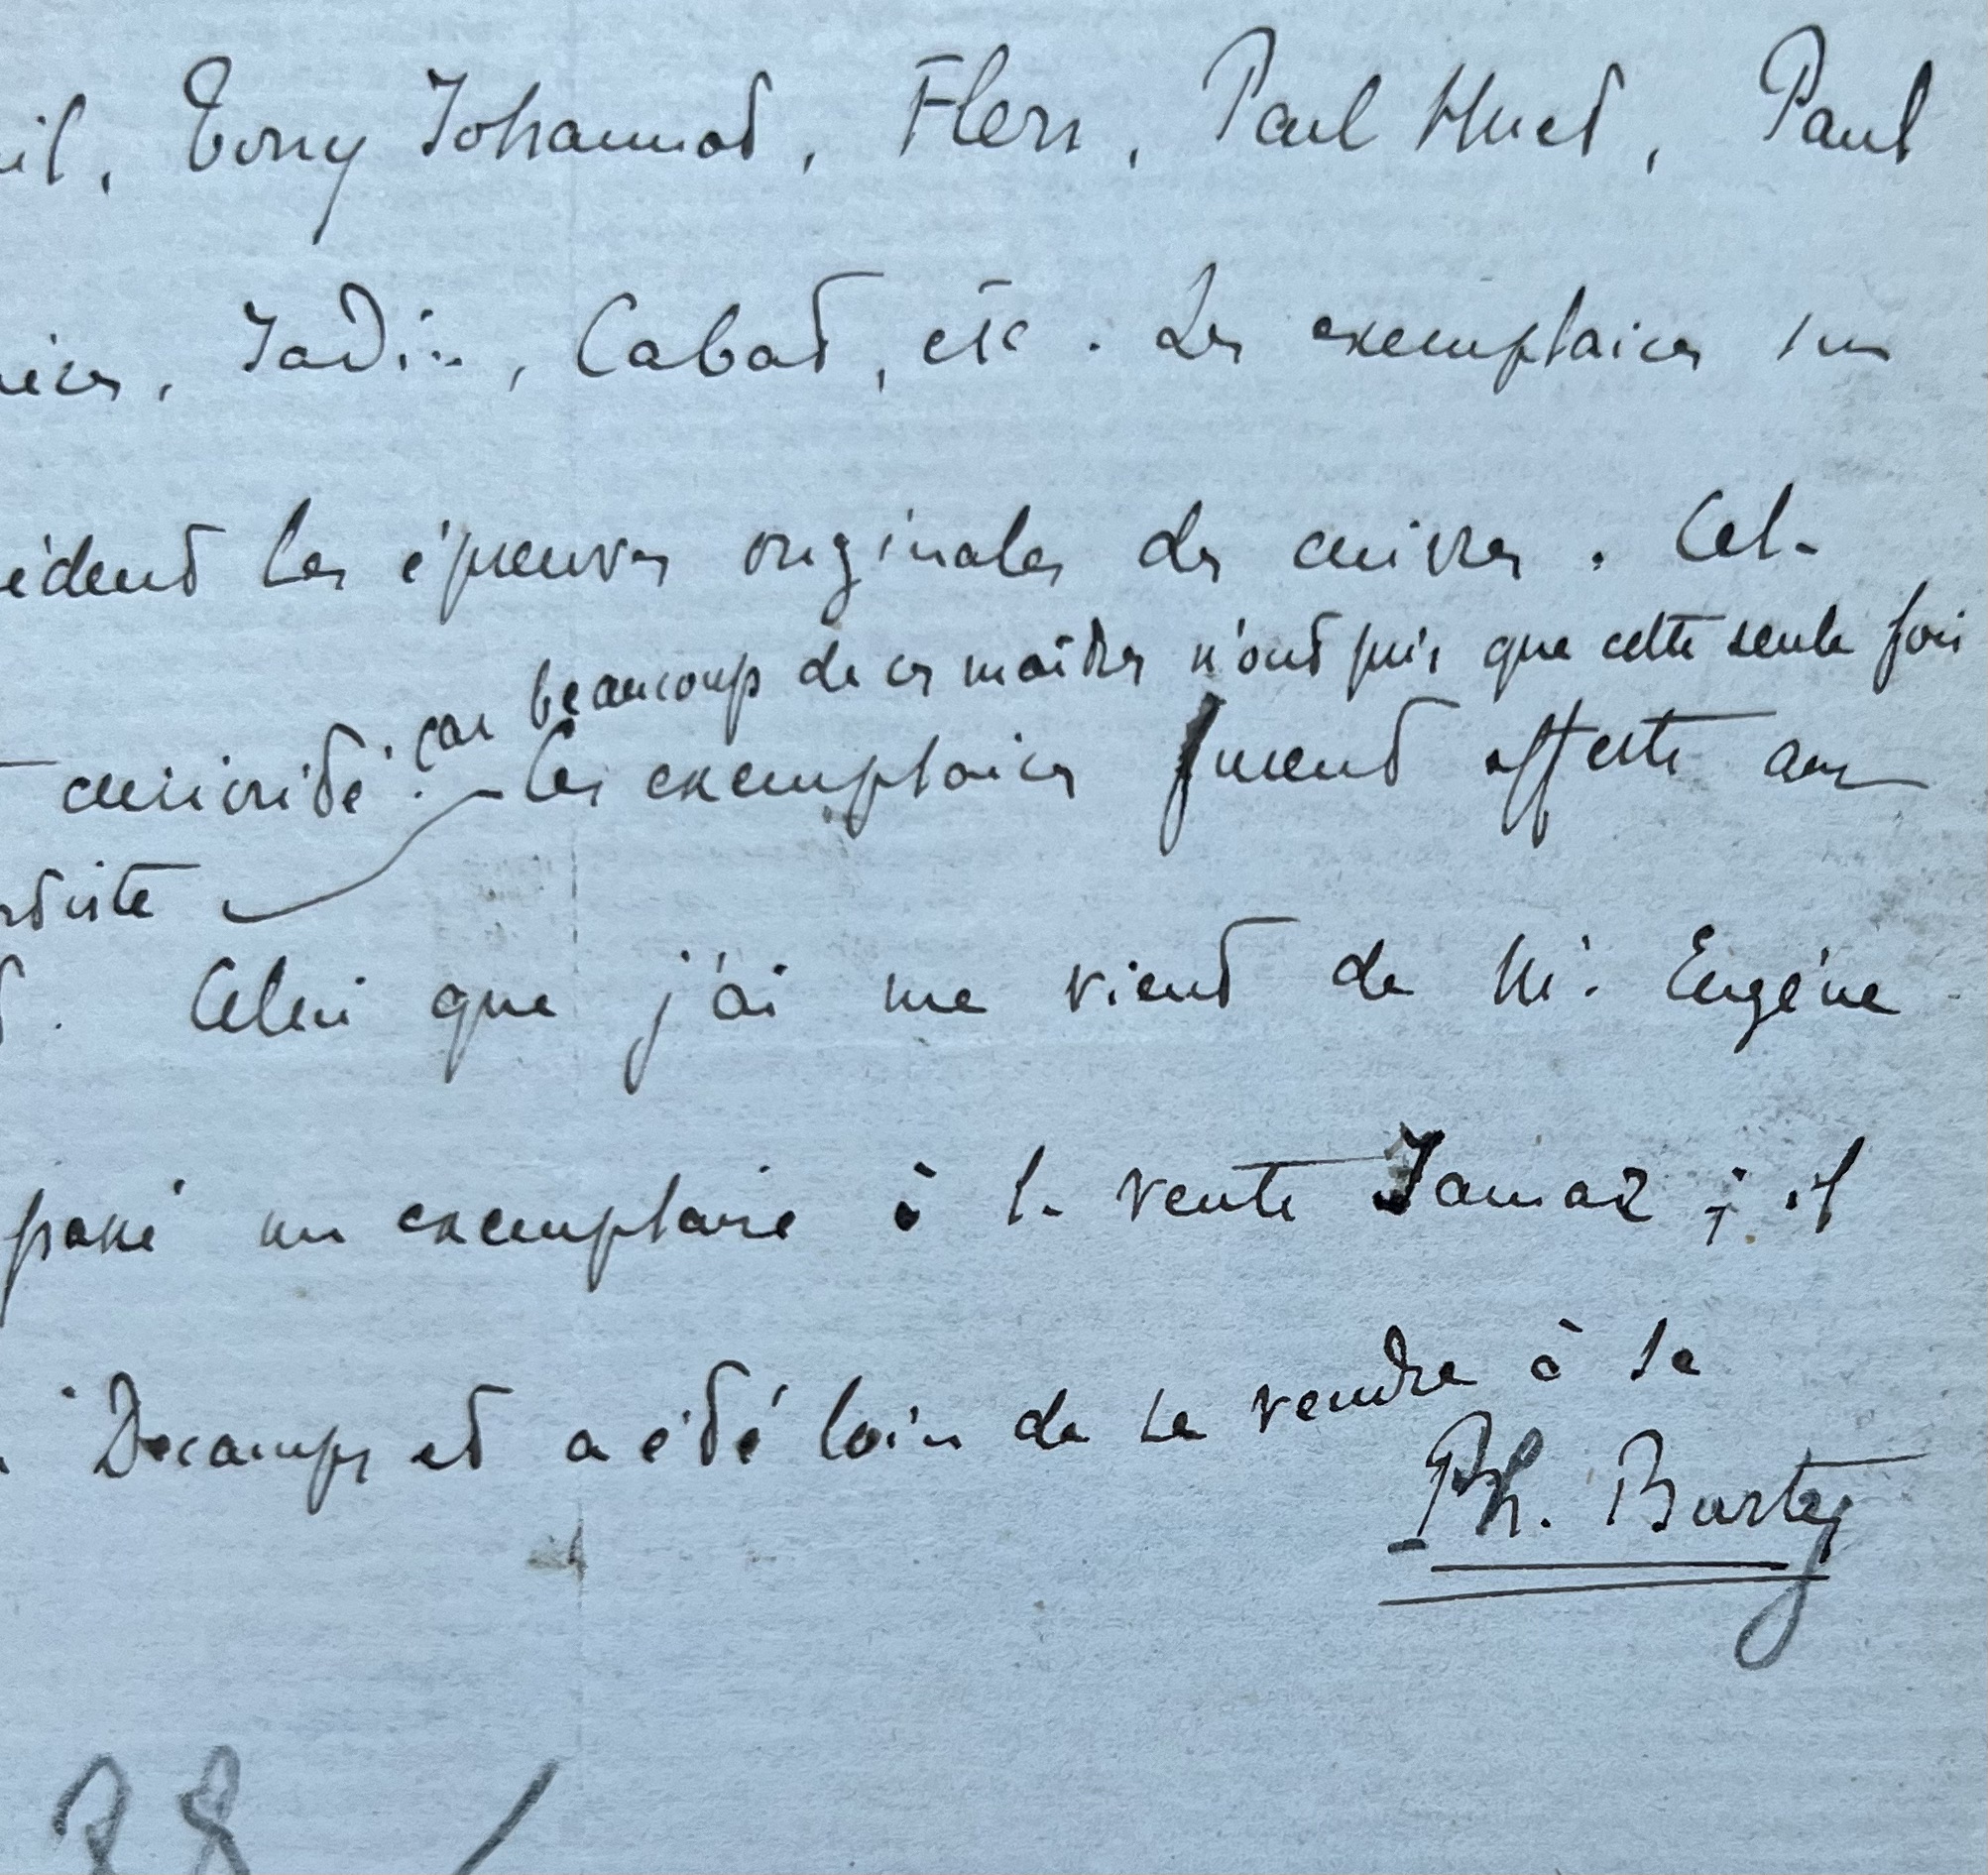 il, Tony Johannot, Flers, Paul Huet, Paul
Jadin, Cabat, etc. Les exemplaires sur
èdent les épreuves originales des cuivres. Cel-
car beaucoup de ces maîtres n'ont pris que cette seule fois
curiosité. Ces exemplaires furent offerts aux
. Celui que j'ai me vient de M. Eugène
passé un exemplaire à la vente Jamar ; il
Decamps et a été loin de se vendre à sa
Ph. Burty